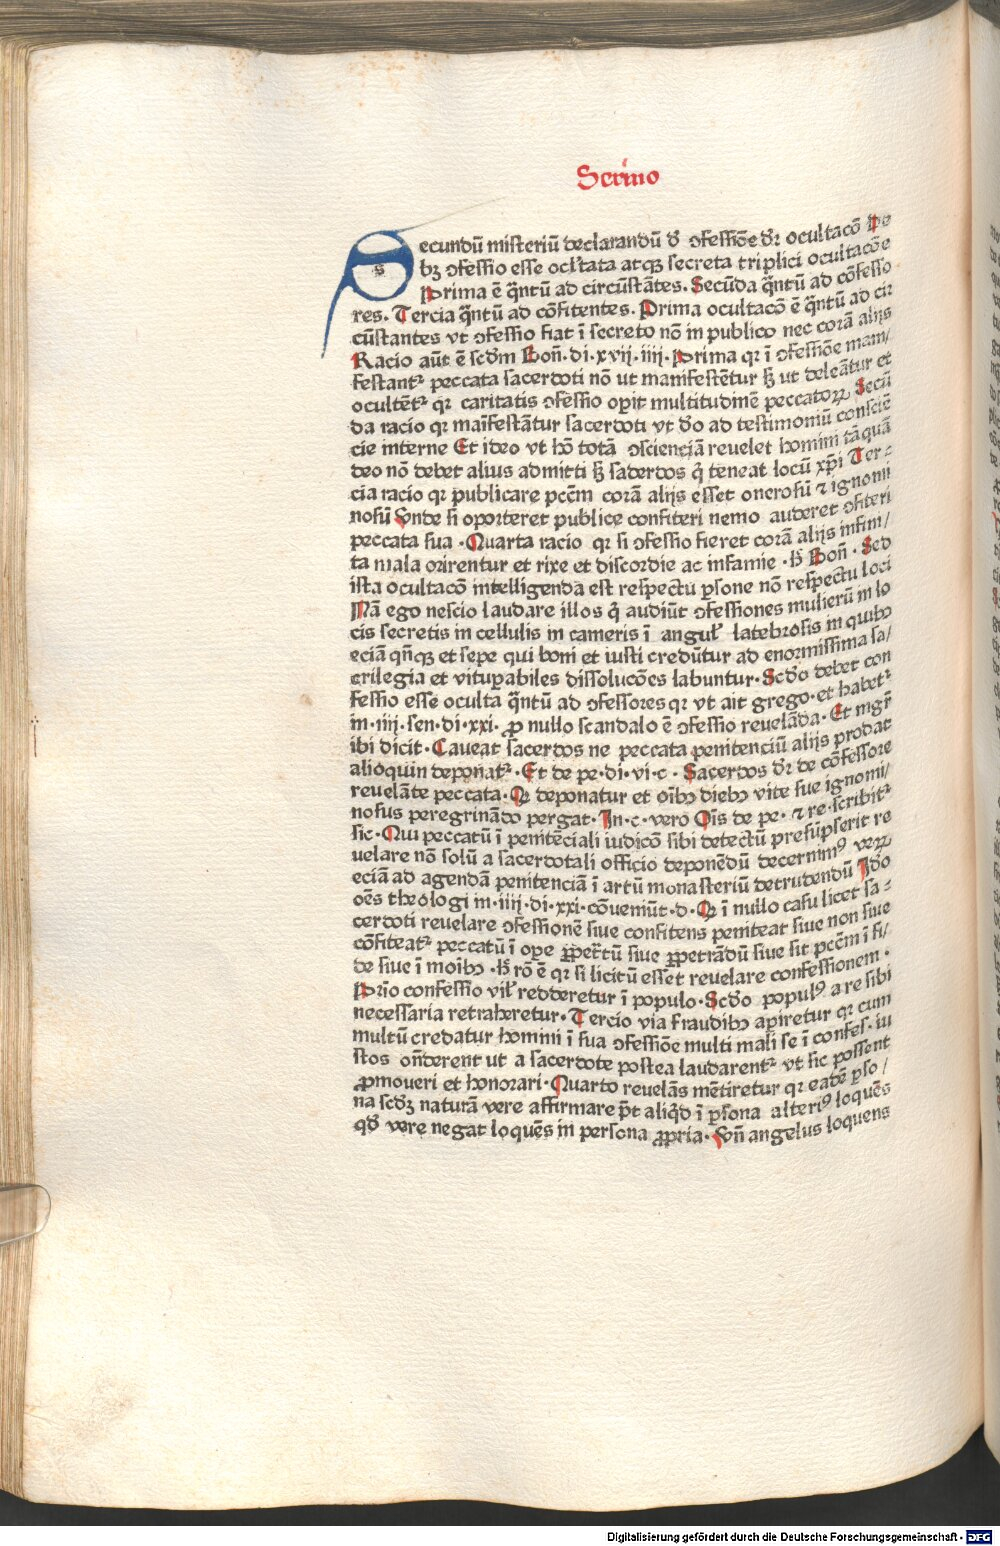 Sermo
Secundū misteriū declarandū ď ꝯfessiōe dr̄ ocultacō De
bꝫ ꝯfessio esse ocl̓tata atqꝫ secreta triplici ocultacōe
Prima ē q̄ntū ad circūstātes. Secūda q̄ntū ad cōfesso
res. Tercia q̄ntū ad cōfitentes. Prima ocultacō ē q̄ntū ad cir
cūstantes vt ꝯfessio fiat ī secreto nō in publico nec corā alijs
Racio aūt ē scďm Bon̄. di. xvij. iiij. Prima qꝛ ī ꝯfessiōe mani/
festantꝛ peccata sacerdoti nō ut manifestētur sꝫ ut deleātur et
ocultētꝛ qꝛ caritatis ꝯfessio oꝑit multitudinē peccatoꝝ Secū
da racio qꝛ maīfestātur sacerdoti vt ďo ad testimoniū consciē
cie interne Et ideo vt hō totā ꝯscienciā revelet homini tāquā
deo nō debet alius admitti sꝫ sacerdos q̇ teneat locū xp̄i Ter⸗
cia racio qꝛ publicare pcc̄m corā alijs esset onerosū ⁊ ignomi
nosū Vnde si oporteret publice confiteri nemo auderet ꝯfiteri
peccata sua . Quarta racio qꝛ si ꝯfessio fieret corā alijs infini/
ta mala orirentur et rixe et discordie ac infamie . h̄ Bon̄ . Sed
ista ocultacō intelligenda est respectu ꝑsone nō respectu loci
Nā ego nescio laudare illos q̇ audiūt ꝯfessiones mulierū in lo
cis secretis in cellulis in cameris ī angul̓ latebrosis in quibꝰ
eciā qn̄qꝫ et sepe qui boni et iusti credūtur ad enormissima sa/
crilegia et vituꝑabiles dissolucōes labuntur. Scďo debet con
fessio esse oculta q̄ntū ad ꝯfessores qꝛ vt ait grego. et habetꝛ
in. iiij. sen. di. xxi. ꝓ nullo scandalo ē ꝯfessio revelāda. Et mgr̄
ibi dicit. Caveat sacerdos ne peccata penitenciū alijs prodat
alioquin deponatꝛ. Et de pe. di. vi. c. Sacerdos dr̄ de cōfessore
revelāte peccata. Qꝛ deponatur et oībꝰ diebꝰ vite sue ignomi/
nosus peregrinādo pergat. In. c. vero Oīs de pe. ⁊ re. scribitꝛ
sic. Qui peccatū ī penitēciali iudicō sibi detectū presūpserit re
velare nō solū a sacerdotali officio deponēdū decernimꝰ veꝝ
eciā ad agendā penitenciā ī artū monasteriū detrudendū Iďo
oēs theologi in. iiij. di. xxi. cōveniūt. d. Qꝛ ī nullo casu licet sa⸗
cerdoti revelare ꝯfessionē siue confitens peniteat siue non siue
cōfiteatꝛ peccatū ī oꝑe ꝑpet̄tū siue ꝑpetrādū siue sit pcc̄m ī fi/
de siue ī moībꝰ . h̄ꝰ rō ē qꝛ si licitū esset revelare confessionem.
Prīo confessio vil̓ redderetur ī populo. Scďo populꝰ a re sibi
necessaria retraheretur. Tercio via fraudibꝰ aꝑiretur qꝛ cum
multū credatur homini ī sua ꝯfessiōe multi mali se ī confes. iu
stos on̄derent ut a sacerdote postea laudarentꝛ vt sic possent
ꝓmoveri et honorari. Quarto revelās mētiretur qꝛ eadē ꝑso/
na scďꝫ naturā vere affirmare pōt aliq̇d ī ꝑsona alteriꝰ loquēs
qď vere negat loquēs in persona ꝓpria. Vn̄ angelus loquens
Digitalisierung gefördert durch die Deutsche Forschungsgemeinschaft - DFG